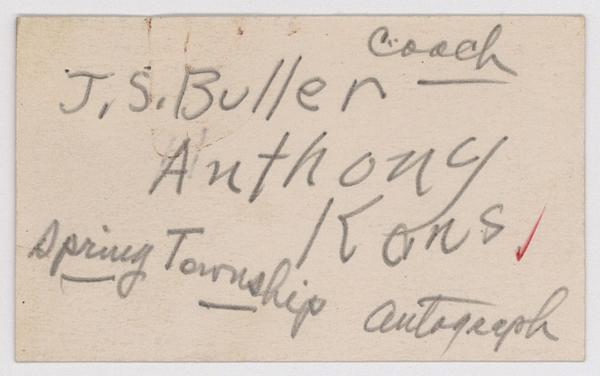 Coach
J. S. Buller
Anthony
Kans
Spring Township
autograph